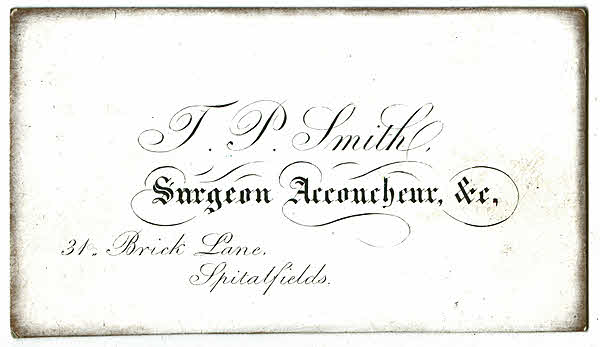 T. P. Smith.
Surgeon Accoucheur, &c,
31. Brick Lane.
Spitalfields.